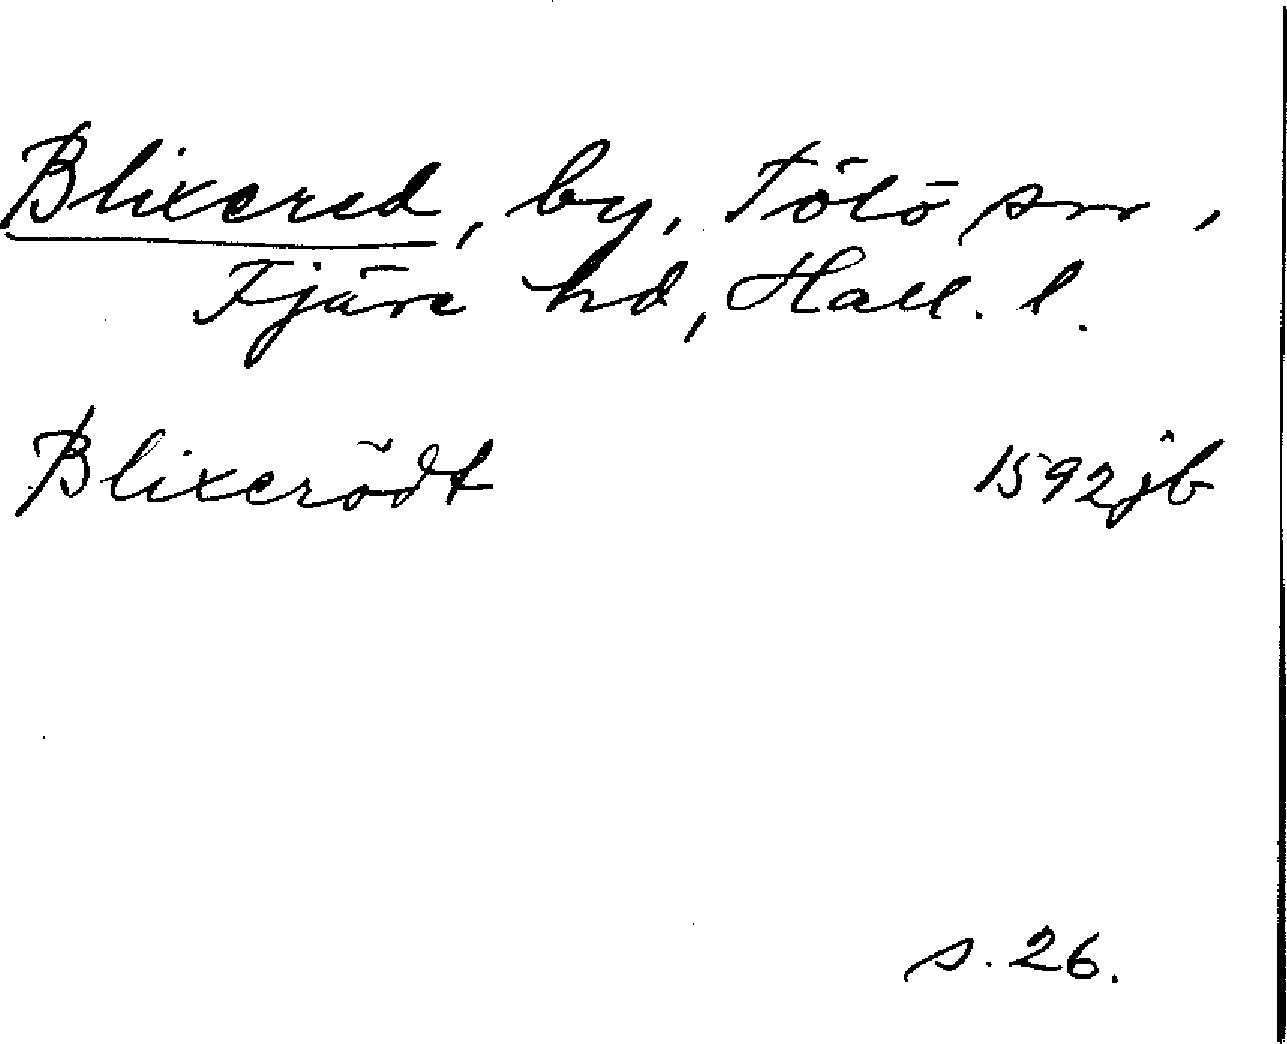 Blixered, by, Tölö sn,
Fjäre hd, Hall. l.
Blixerödt 1592 jb
s. 26.